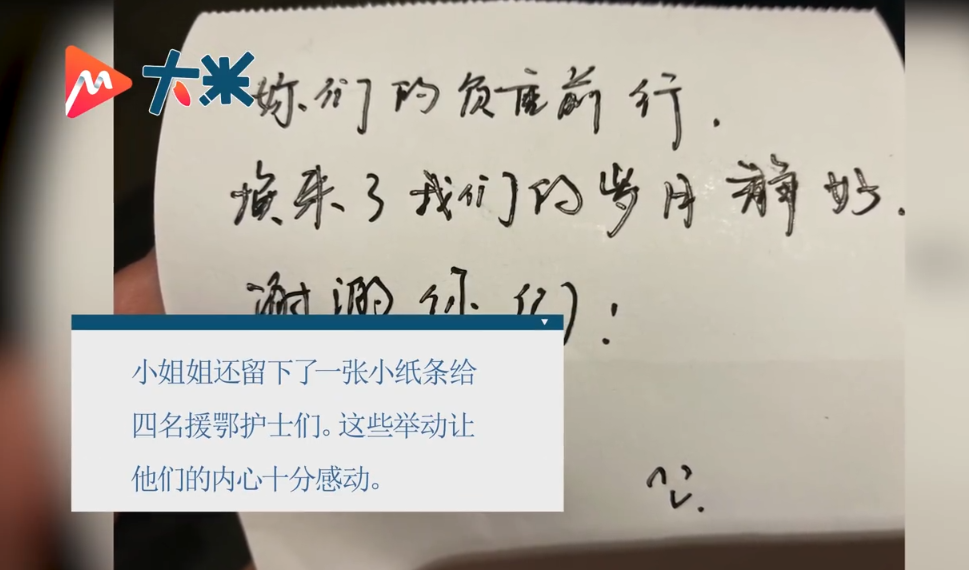 大米
你们的负重前行.
换来了我们的岁月静好.
谢谢你们!
小姐姐还留下了一张小纸条给
四名援鄂护士们。这些举动让
他们的内心十分感动。